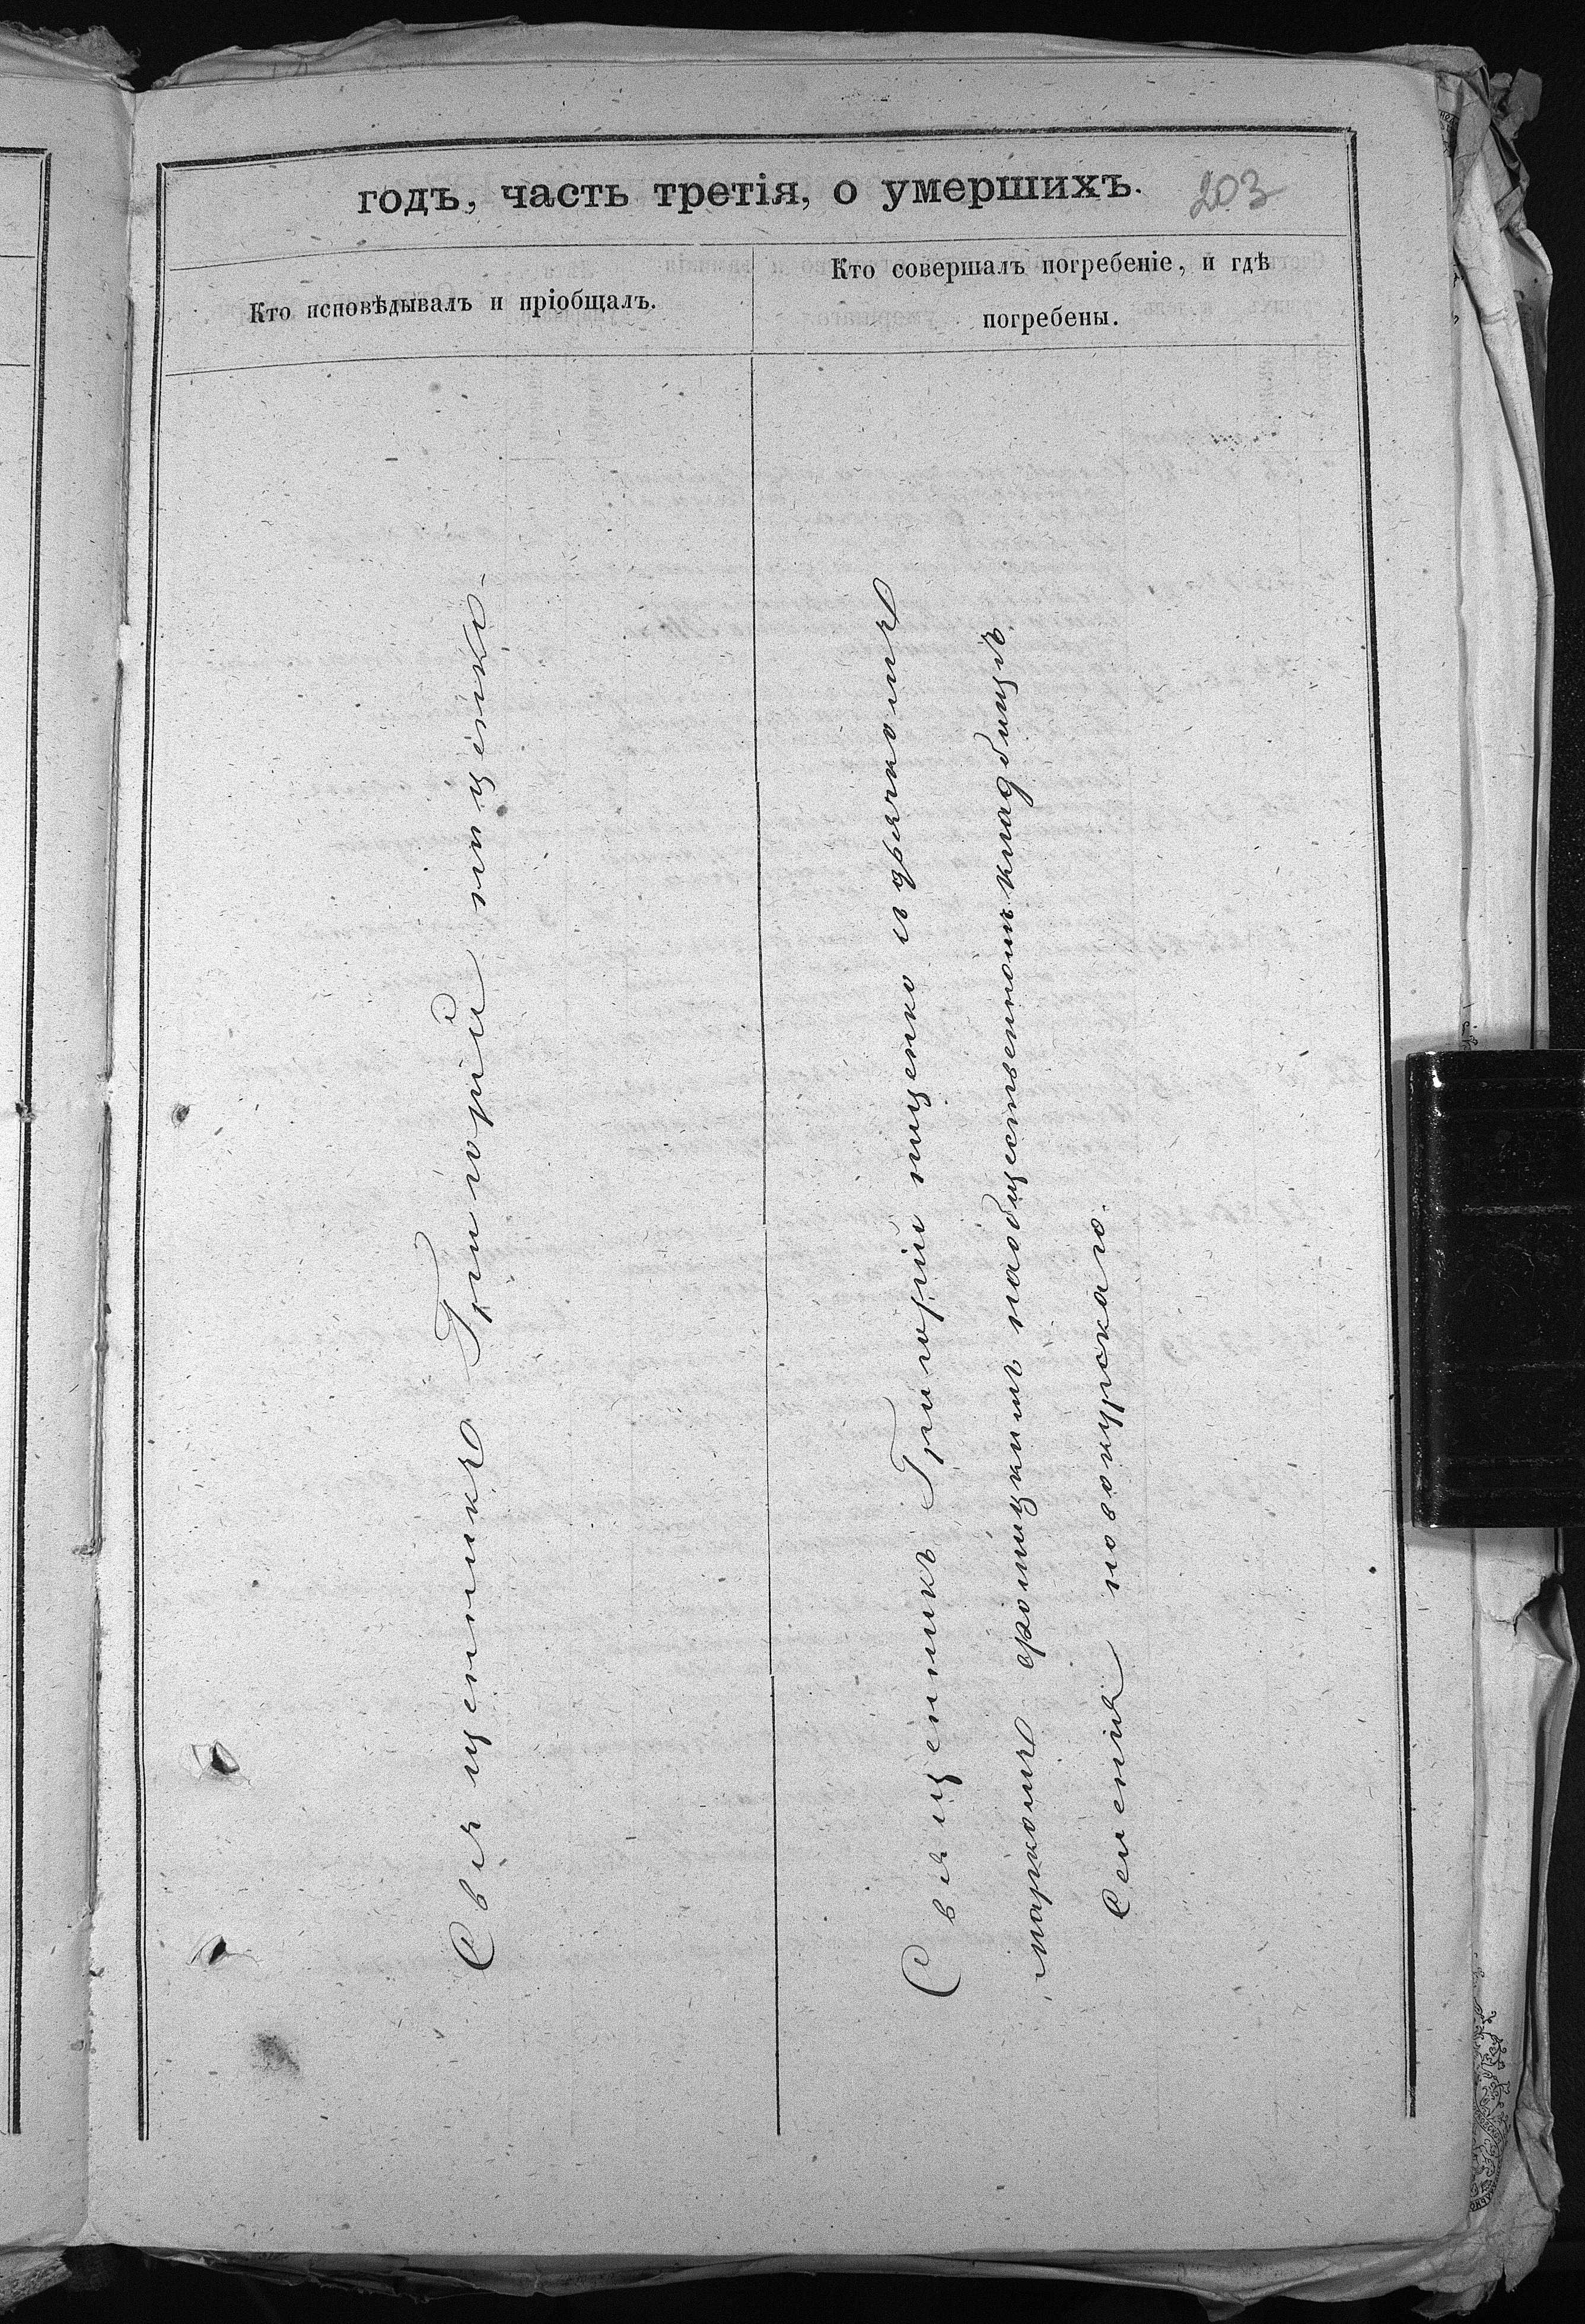 годъ, часть третія, о умершихъ.
203
Кто исповѣдывалъ и пріобщалъ.
Кто совершалъ погребеніе, и гдѣ
погребены.
Священникъ Григорій тищенко-
Священникъ Григорій тищенко и дьячкомъ
маркомъ наобщественномъ кладбищѣ
Селенія новокурскаго.